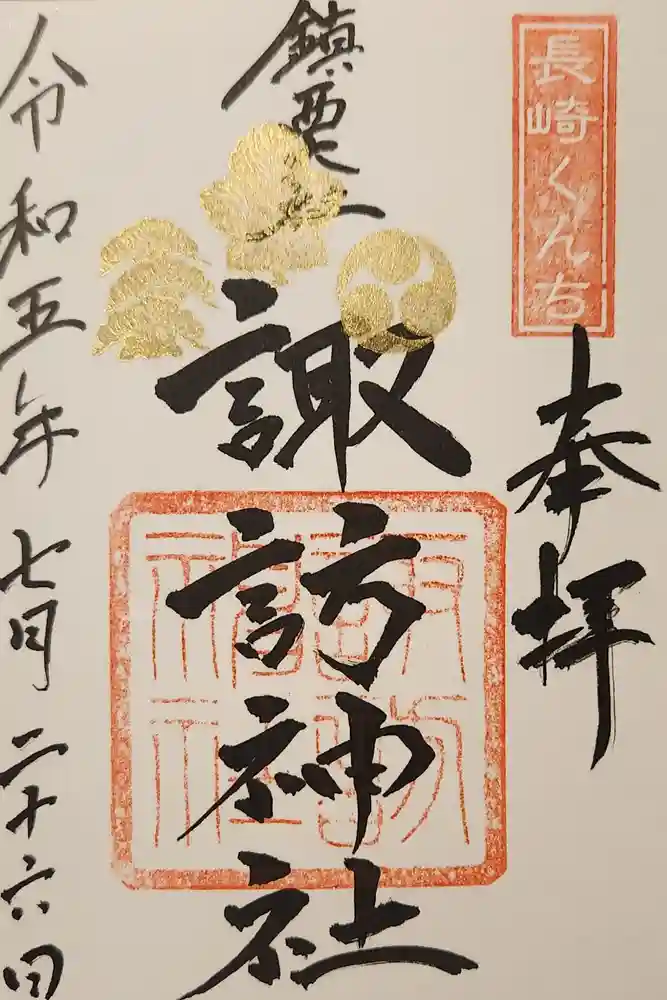 長崎くんち
奉拝
鎮西大社
諏訪神社
令和五年七月二十六日
諏訪神社